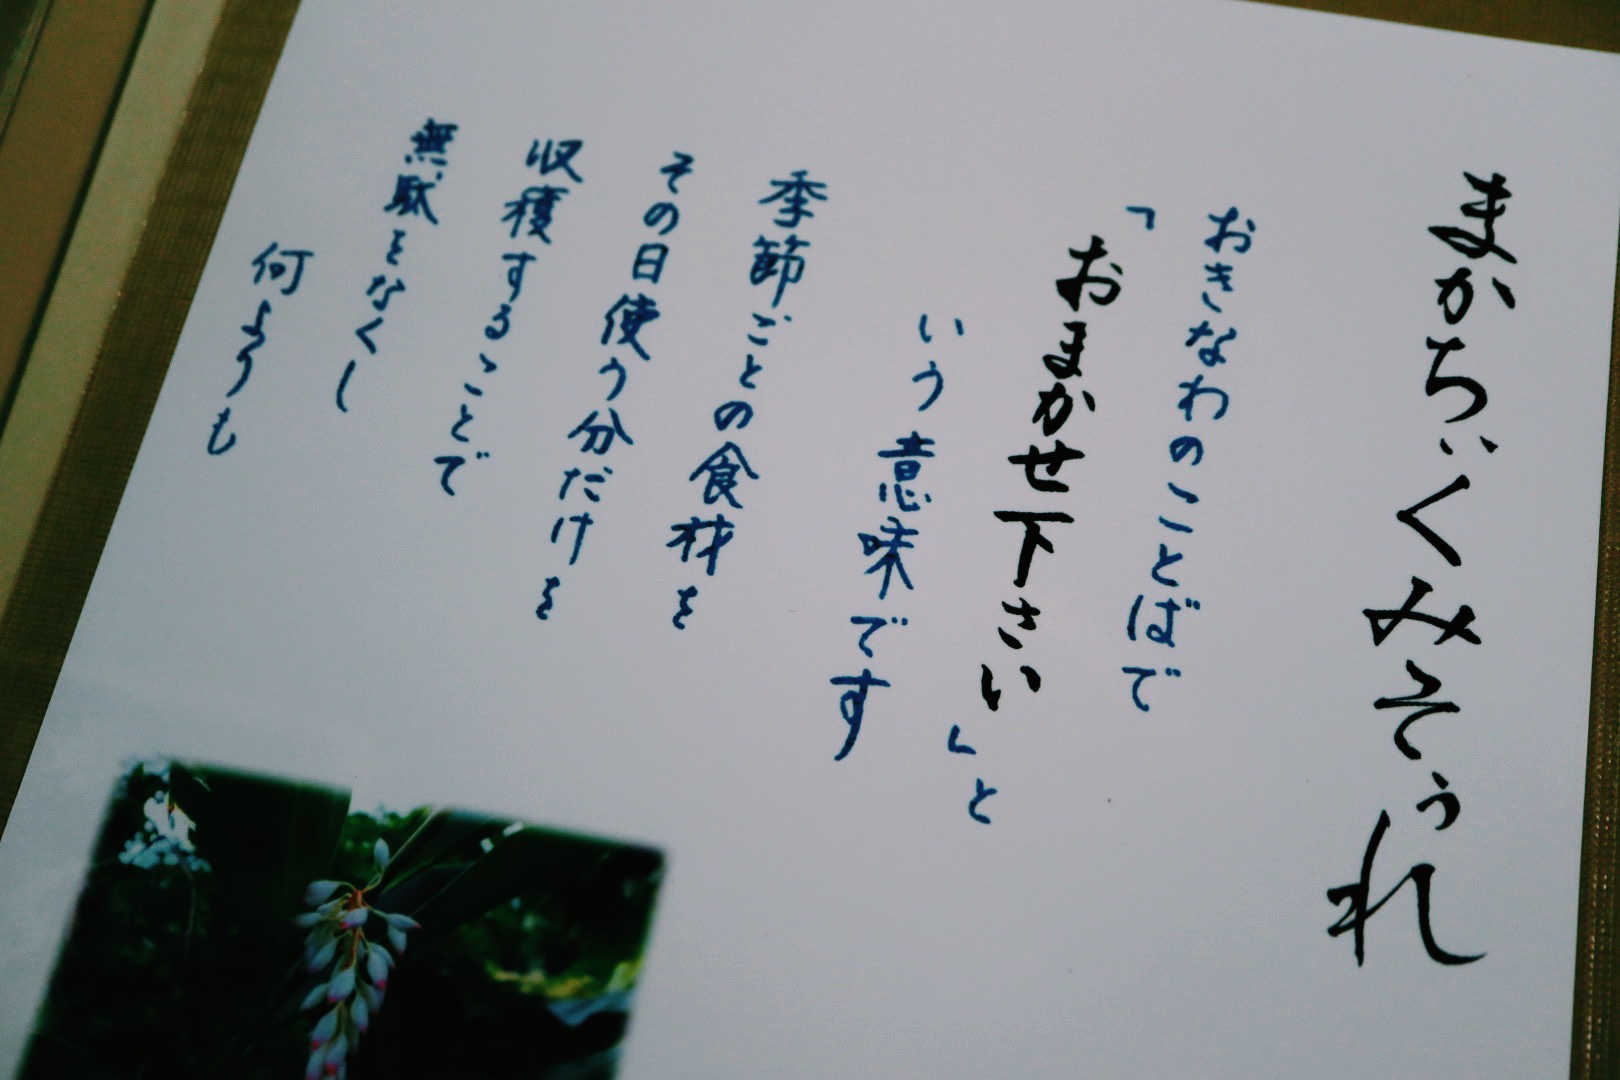 まかちぃくみそぅれ
おきなわのことばで
「おまかせ下さい」と
いう意味です
季節ごとの食材を
その日使う分だけを
収穫することで
無駄をなくし
何よりも